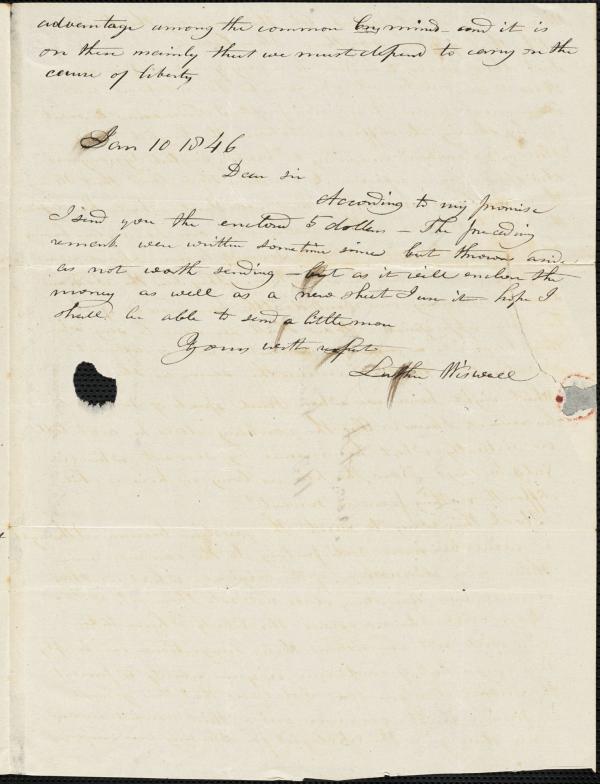 advantage among the common mind – and it is
on these mainly that we must depend to carry on the
cause of liberty
Jan 10 1846
Dear sir
According to my promise
I send you the enclosed 5 dollars – The preceding
remarks were written sometime since but thrown aside
as not worth sending – but as it will enclose the
money as well as a new sheet I use it – hope I
shall be able to send a little more
Yours with respect
Luther Wiswall